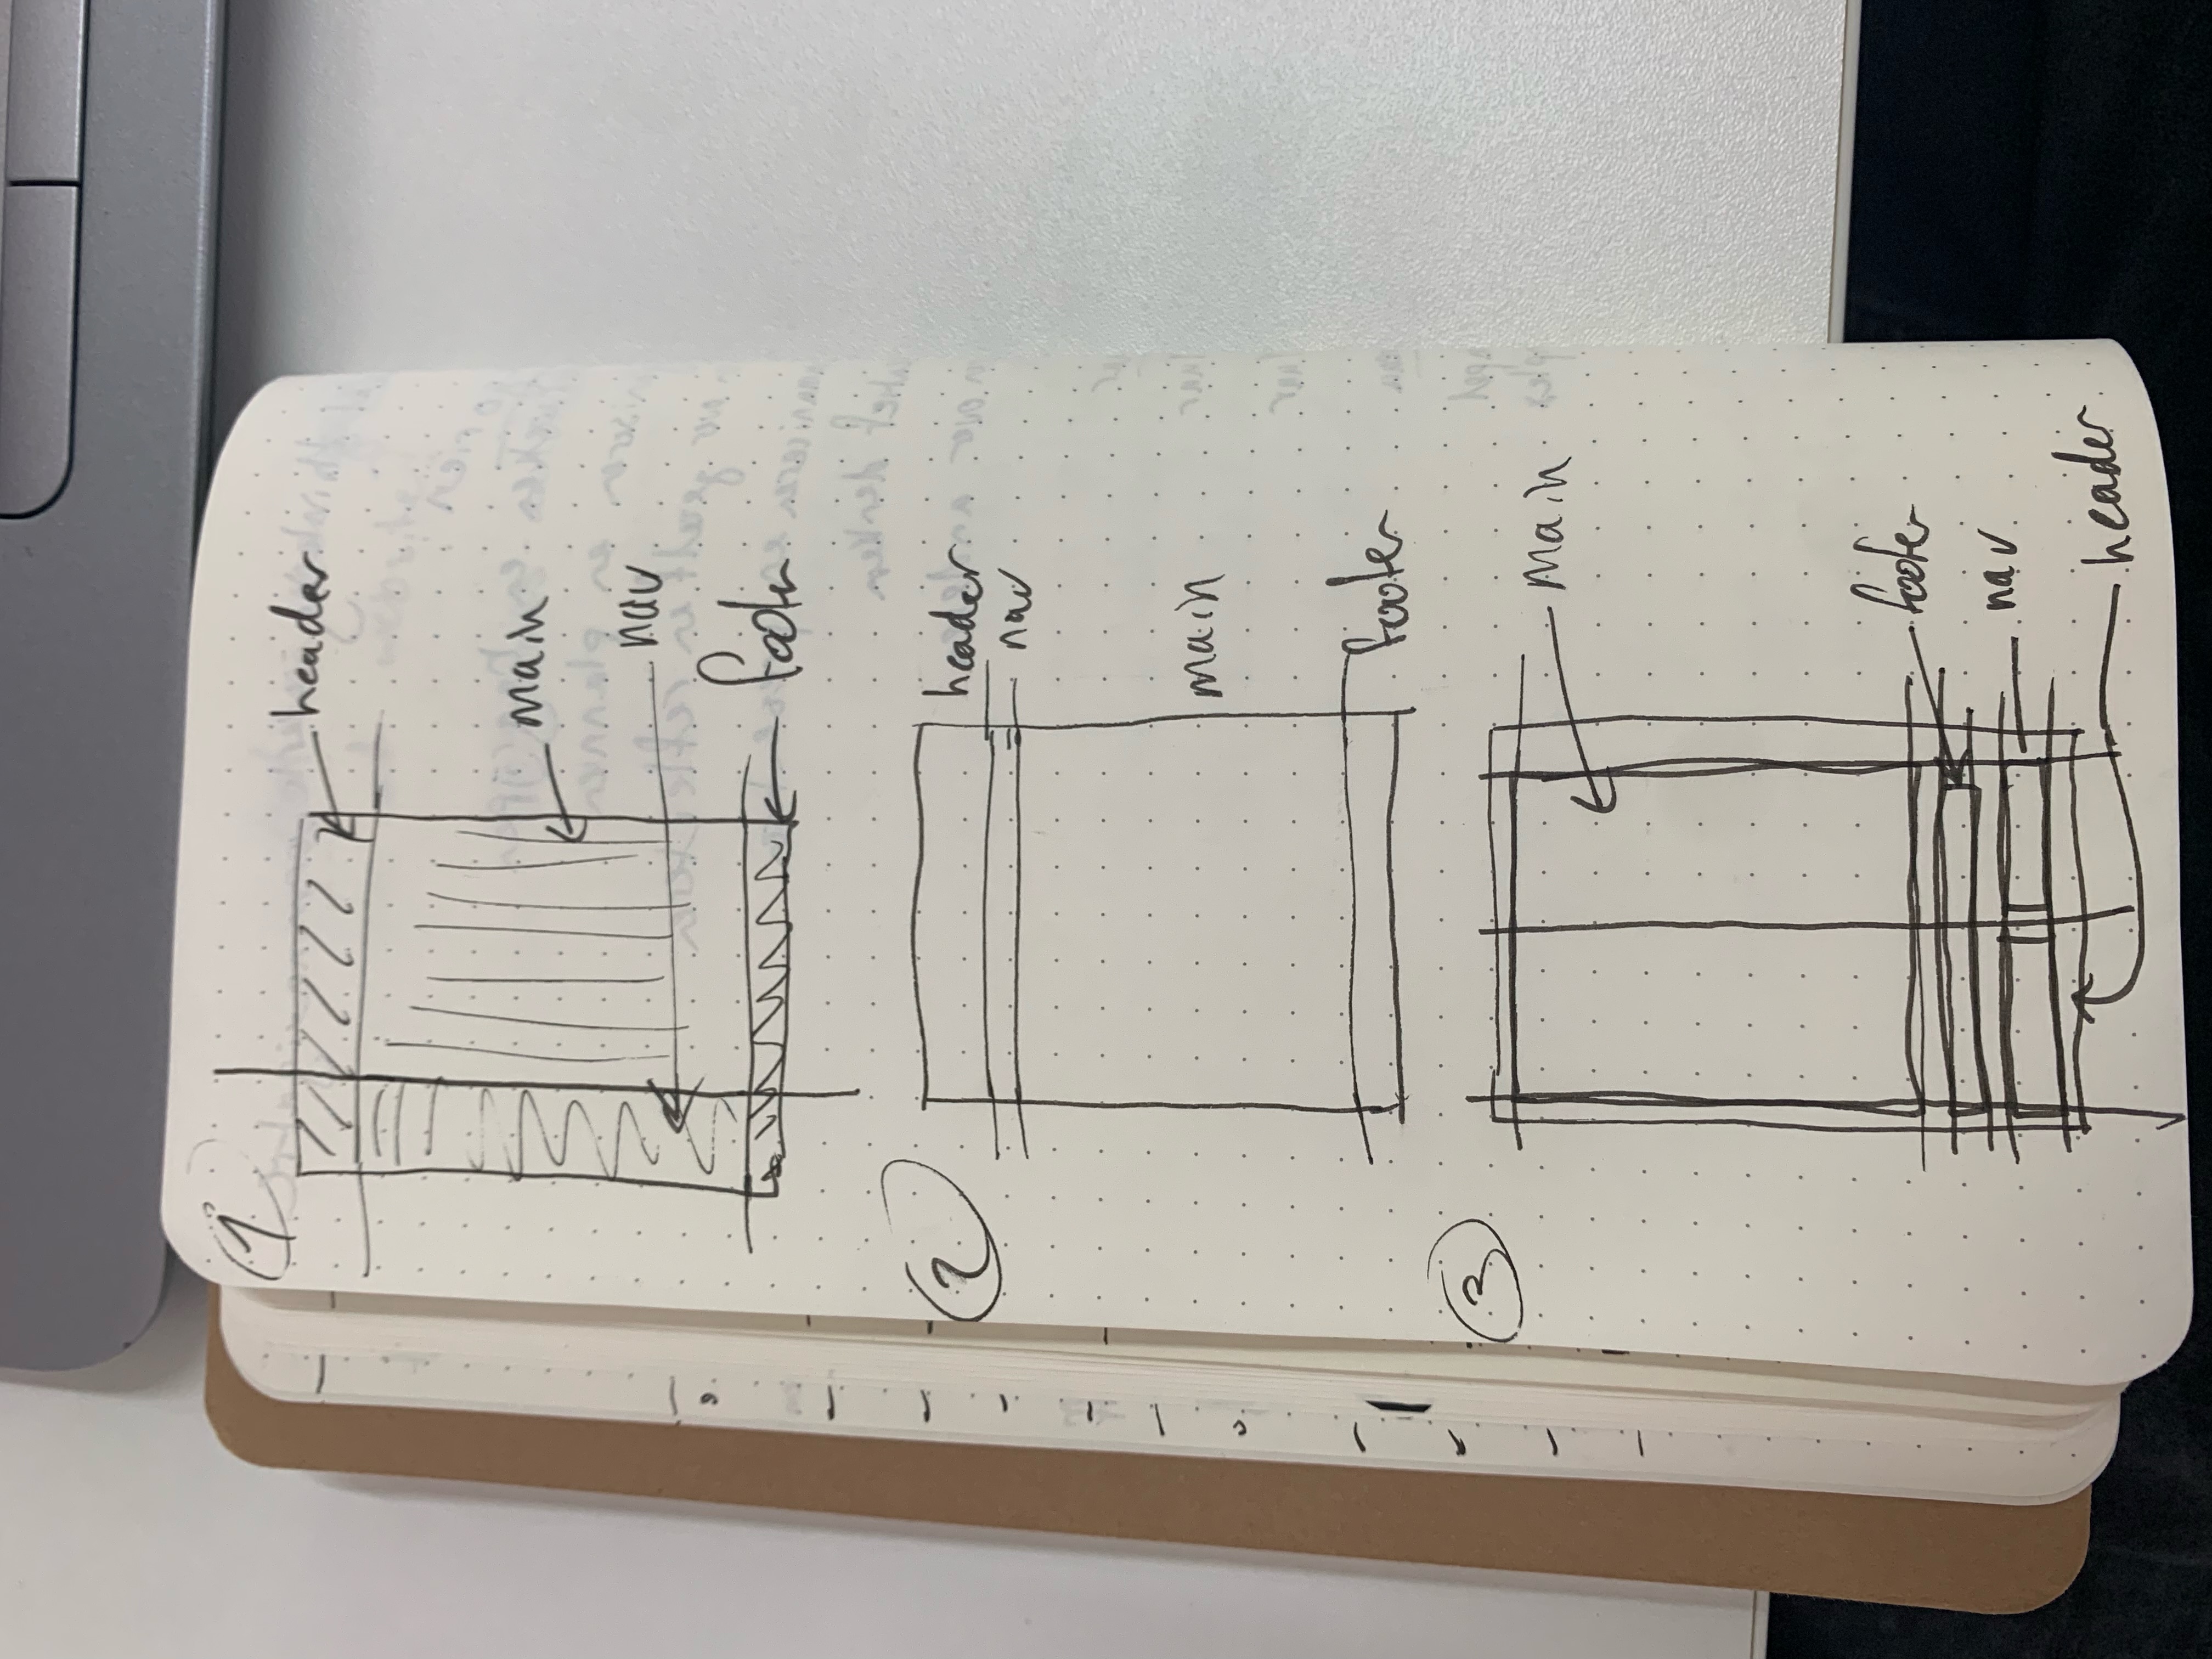 1
header
main
nav
footer
2
header
nav
main
footer
3
main
footer
nav
header